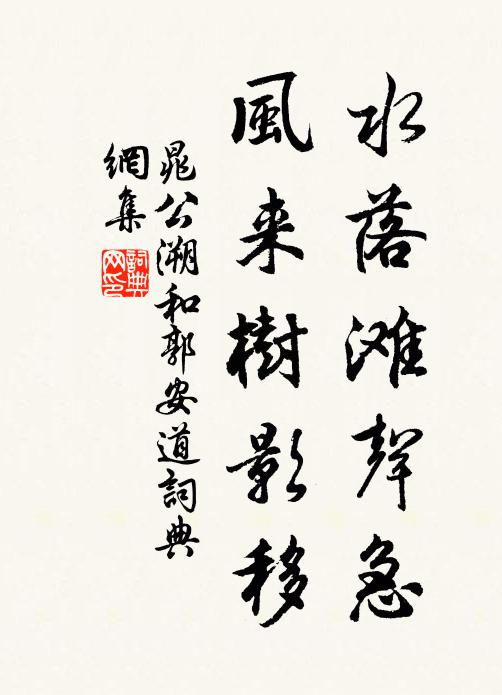 水落滩聲急
風来樹影移
晁公溯和郭安道詞典
網集
詞典網印